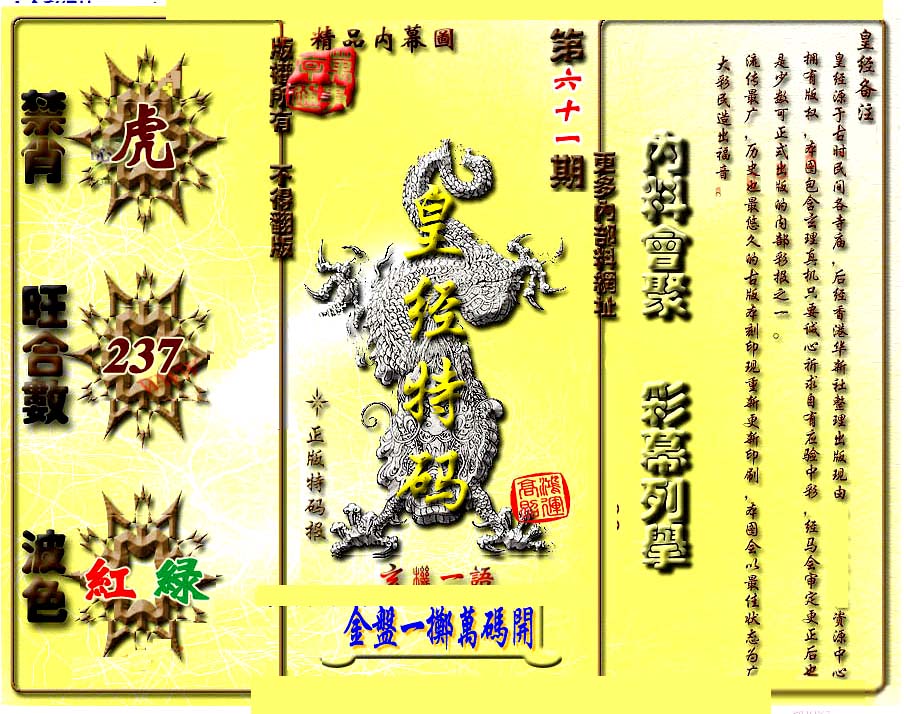 精品內幕圖
第六十一期
版權所有 不得翻版
更多內部料網址
禁肖
虎
旺合數
237
波色
紅 綠
皇经特码
正版特码报
鴻運高照
玄機一語
金盤一擲萬碼開
內料會聚
彩幕列舉
皇经备注
皇经源于古时民间各寺庙，后经香港华新社整理出版现由 资源中心
拥有版权，本图包含玄理真机只要诚心祈求自有应验中彩，经马会审定更正后也
是少数可正式出版的内部彩报之一。
流传最广，历史也最悠久的古版本刻印现重新更新印刷，本图会以最佳状态为广
大彩民造出福音